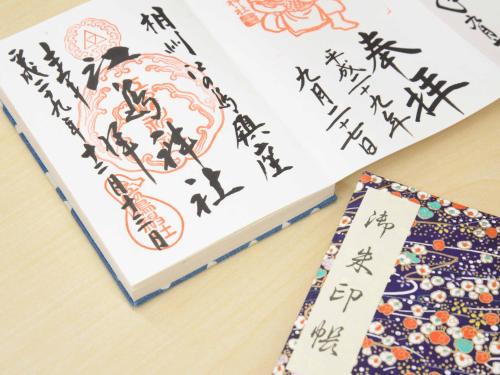 奉拝
平成二十九年
九月二十七日
相州江の島鎮座
江島神社
奉拝
平成二九年十二月十三日
御朱印帳